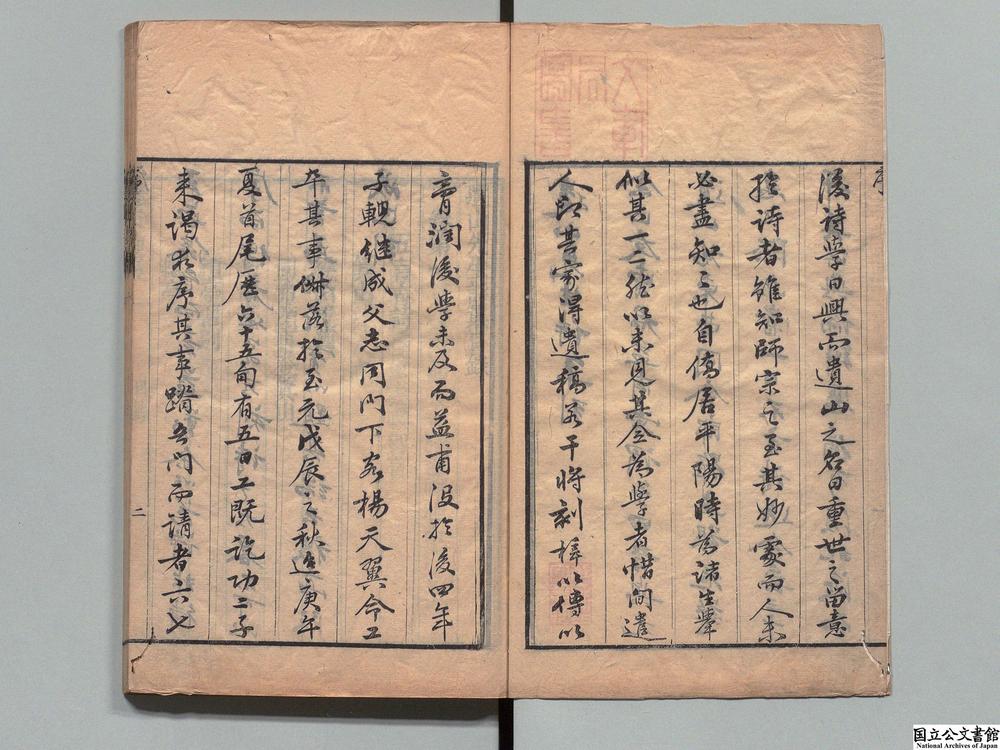 後詩學日興而遺山之名日重世之留意
於詩者雖知師宗之至其妙處而人未
必盡知之也自僑居平陽時為諸生舉
似其一二然以未見其全為學者惜間遣
人即其家得遺稿若干將刻梓以傳以
膏潤後學未及而益甫沒於後四年
子輗繼成父志同門下客楊天翼命工
卒其事併落於至元戊辰之秋迄庚午
夏首尾歷六十五旬有五日工既訖功二子
來謁求序其事踏吾門而請者六七
二
国立公文書館
National Archives of Japan